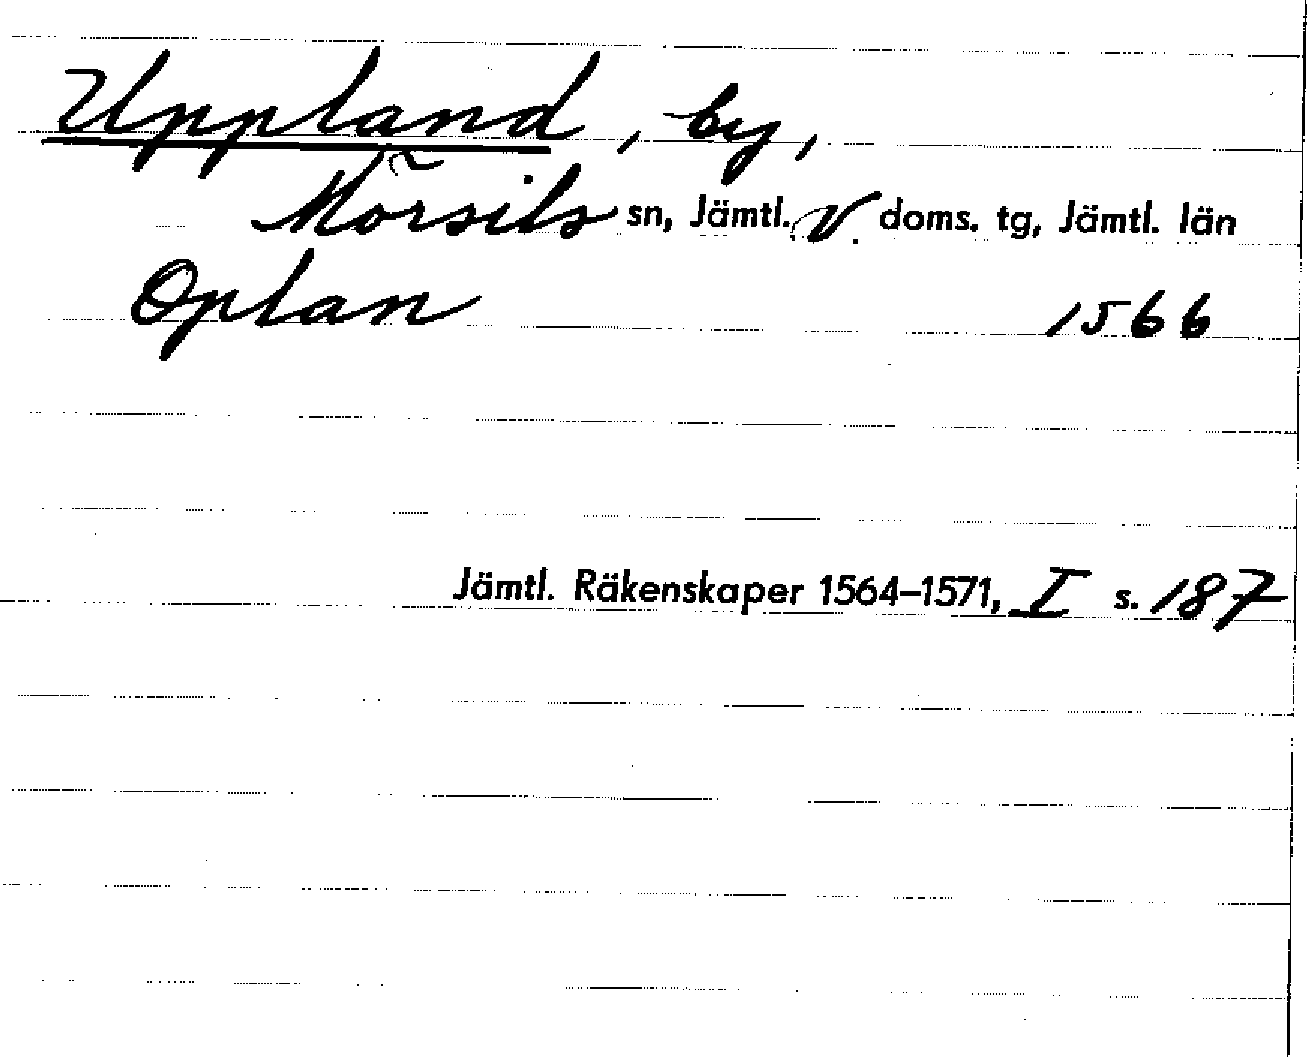 Uppland, by,
Mörsils sn, Jämtl. V. doms. tg, Jämtl. län
Oplan 1566
Jämtl. Räkenskaper 1564–1571, I s. 187